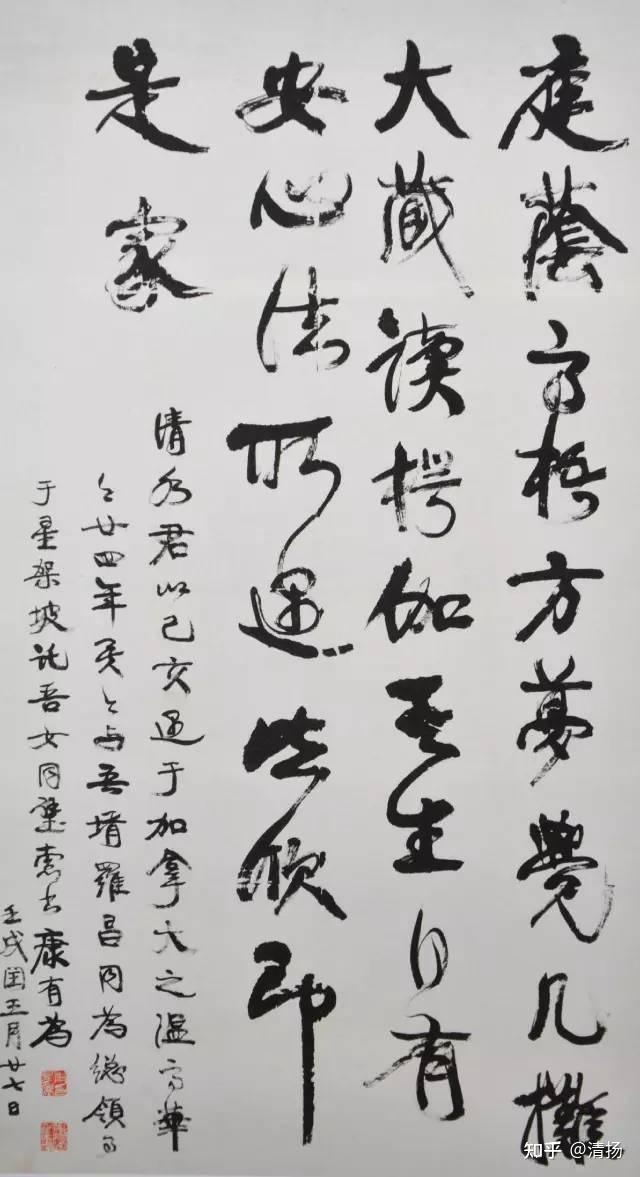 庭蔭高梧方夢覺几攤
大藏讀楞伽吾生自有
安心法所遇皆欣即
是家
清水君以己亥遇于加拿大之溫高華
今廿四年矣今与吾壻羅昌同為總領事
于星架坡託吾女同璧索書康有為
壬戌閏五月廿七日
知乎 @清扬